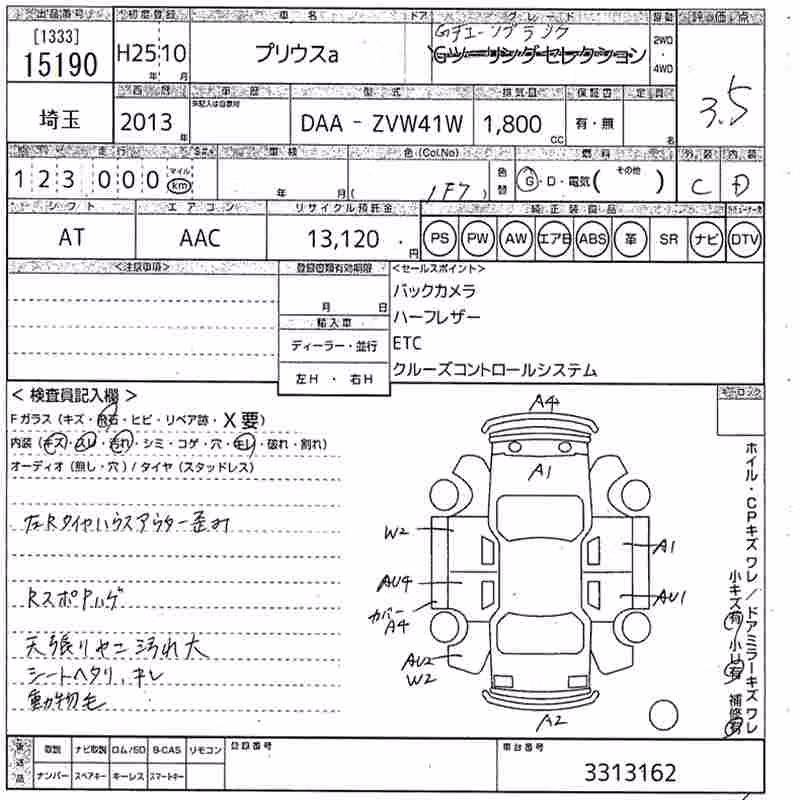 出品番号 初度登録 車名 ドア グレード 駆動 評価点
[1333]
15190
H25年10月
プリウスα
Gチューンブラック
Gツーリングセレクション
2WD
4WD
3.5
西暦 車歴 型式 排気量 保証書 定員
未記入は自家用
埼玉
2013年
DAA - ZVW41W
1,800cc
有・無
名
走行 車検 色(Col.No) 燃料 外装 内装
123000
マイル
km
年 月
(1F7)
色替
G・D・電気( その他 )
C D
シフト エアコン リサイクル預託金 純正装備品
AT
AAC
13,120円
PS PW AW エアB ABS 革 SR ナビ DTV
<注意事項>
登録書類有効期限
月 日
輸入車
ディーラー・並行
左H ・ 右H
<セールスポイント>
バックカメラ
ハーフレザー
ETC
クルーズコントロールシステム
<検査員記入欄>
Fガラス(キズ・飛石・ヒビ・リペア跡・X要)
内装(キズ・スレ・汚れ・シミ・コゲ・穴・キレ・破れ・割れ)
オーディオ(無し・穴)/タイヤ(スタッドレス)
左Rタイヤハウスアウター歪み
Rスポ Pハゲ
天張りヤニ汚れ大
シートヘタリ、キレ
動物毛
A4
A1
W2
A1
AU4
AU1
カバーA4
AU2
W2
A2
キーロック
ホイル・CPキズワレ/ドアミラーキズワレ
小キズ有 小U有 補修有
後送品
取説 ナビ取説 ロム/SD B-CAS リモコン
ナンバー スペアキー キーレス スマートキー
登録番号
車台番号
3313162